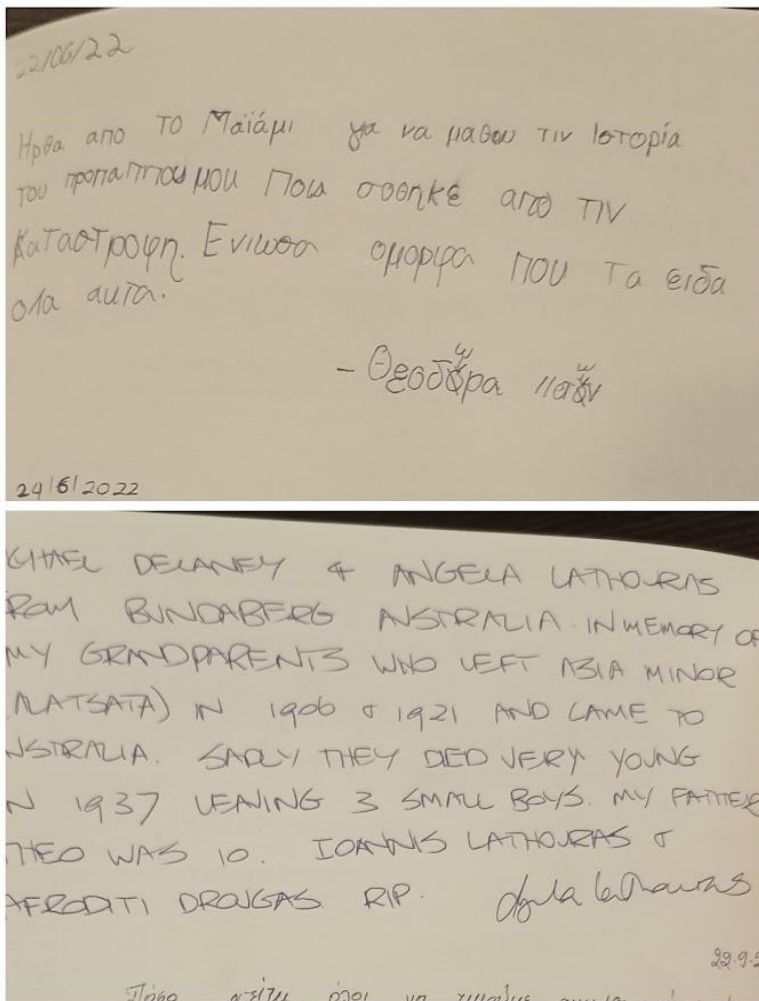 22/06/22
Ηρθα απο το Μαϊάμι για να μαθω τιν Ιστορία
του προπαππου μου Που σοθηκε από τιν
Καταστροφη. Ενιωσα ομορφα που τα ειδα
ολα αυτα.
- Θεοδώρα
24/6/2022
CHAEL DELANEY & ANGELA LATHOURAS
ROM BUNDABERG AUSTRALIA. IN MEMORY OF
MY GRANDPARENTS WHO LEFT ASIA MINOR
(ALATSATA) IN 1906 & 1921 AND CAME TO
USTRALIA. SADLY THEY DIED VERY YOUNG
N 1937 LEAVING 3 SMALL BOYS. MY FATHER
THEO WAS 10. IOANNIS LATHOURAS &
AFRODITI DROUGAS RIP. Angela Lathouras
22.9.2
Πόσο όλοι να